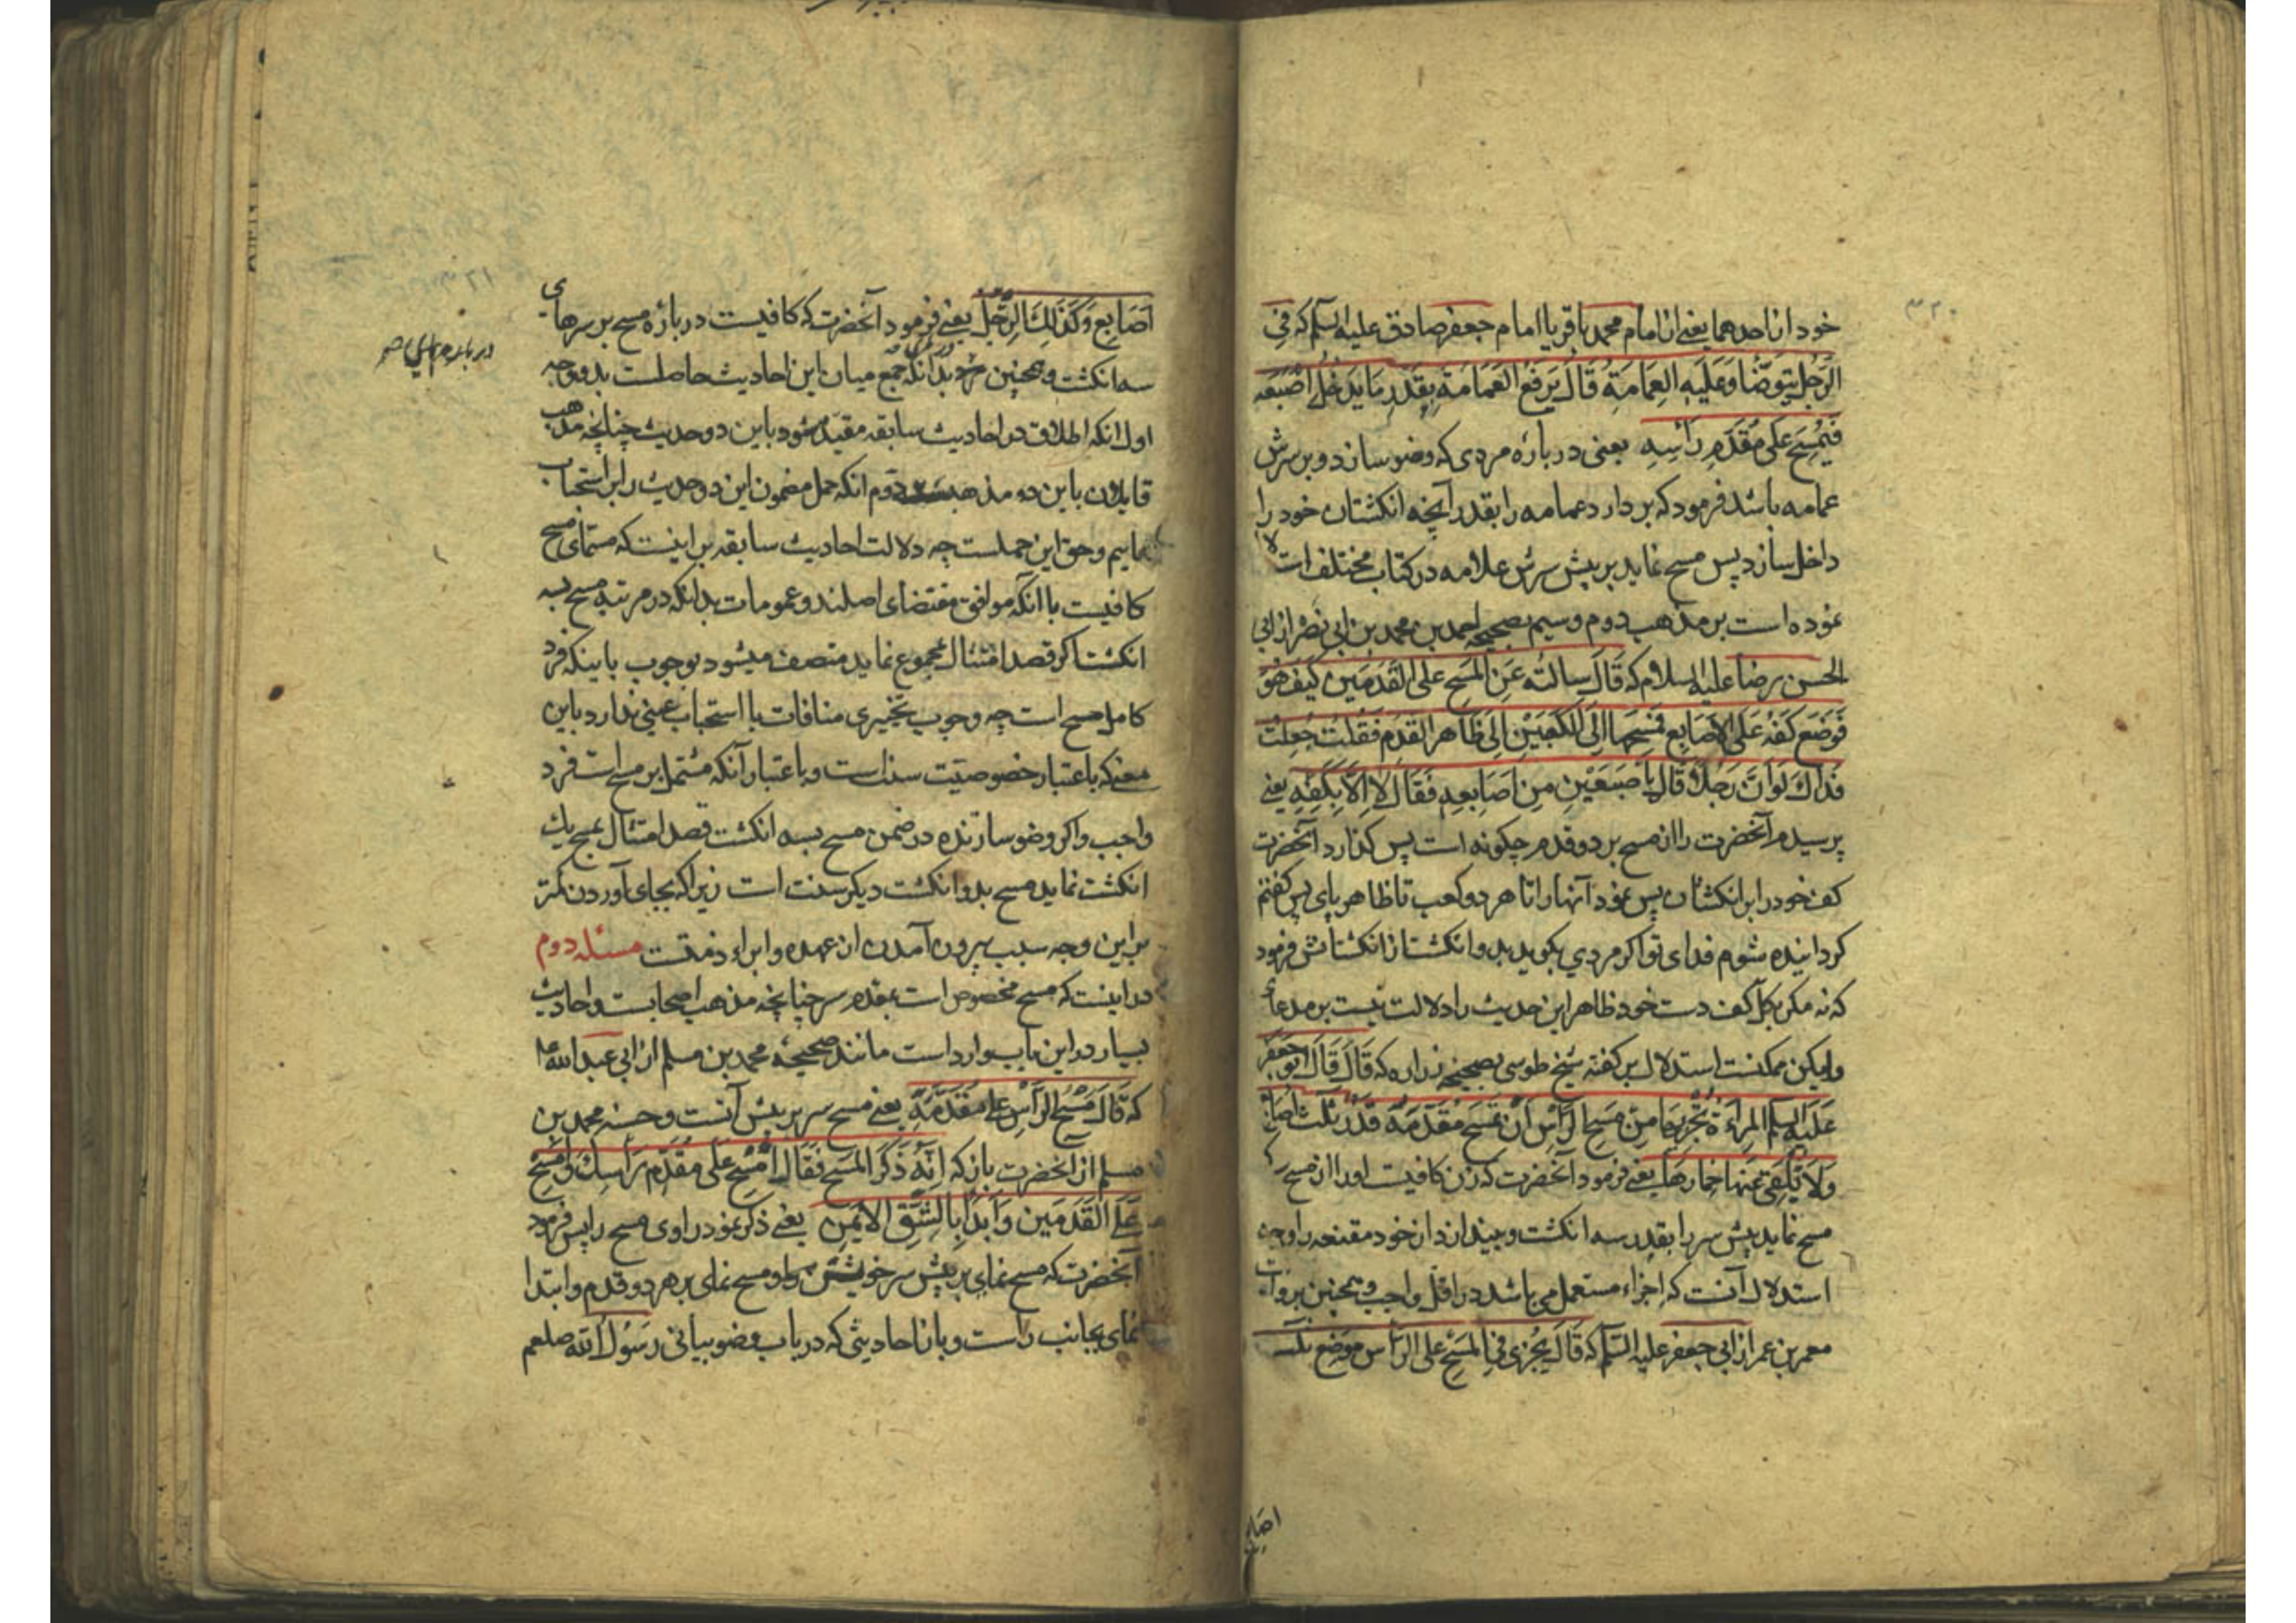 ۳۲۰
خود از احدهما یعنی از امام محمد باقر یا امام جعفر صادق علیه السلم که فِی
الرَّجُلِ یَتَوَضَّأُ وَعَلَیهِ العِمَامَةُ قَالَ یَرفَعُ العَمَامَةِ بِقَدرِ مَا یَدخُلُ اصْبَعَه
فَیَمْسَحُ عَلَی مُقَدَّمِ رَأسِهِ یعنی در بارهٔ مردی که وضو سازد و بر سرش
عمامه باشد فرمود که بردارد عمامه را بقدر آنچه انکشتان خود را
داخل سازد پس مسح نماید بر پیش سرش علامه در کتاب مختلف استدلا
نموده است بر مذهب دوم و سیم بصحیحه احمد بن محمد بن ابی نصر از ابی
الحسن رضا علیه السلام که قَالَ سالتُه عَنِ المَسحِ علی القَدَمَین کَیفَ هُوَ
فَوَضَعَ کَفَّهُ عَلَی الاَصَابِعِ فَمَسَحَهَا اِلَی الکَعبَیْنِ اِلَی ظَاهر القدَمِ فَقُلتُ جُعِلتُ
فداکَ لَو اَنَّ رَجُلاً قَالَ بِاِصبَعَیْنِ مِن اَصَابِعِهِ فَقَالَ لا اِلاَّ بِکَفِّهِ یعنی
پرسیدم آنحضرت را از مسح بر دو قدم چکونه است پس کذارد آنحضرت
کف خود را بر انکشتان پس نمود آنها را تا هر دو کعب تا ظاهر پای پس کفتم
کردانیده شوم فدای تو اکر مردی بکوید بدو انکشت از انکشتانش فرمود
که نه مکر بکل کف دست خود ظاهر این حدیث را دلالت نیست بر مدعا
ولیکن ممکنست استدلال بر کفته شیخ طوسی بصحیحه زراره که قَالَ قَالَ ابو جعفر
عَلَیهِ السلم المرأة یُجزیها مِن مَسحِ الرَّأسِ أن تَمسَحَ مُقَدَّمَهُ قَدْرَ ثَلثِ اصَابِع
وَلاَ تُلقِی عَنها خِمارها یعنی فرمود آنحضرت که زن کافیست او را از مسح
مسح نماید پیش سر را بقدر سه انکشت و نیندازد از خود مقنعه را وجه
استدلال آنست که اجزاء مستعمل می باشد در اقل واجب و همچنین بروایت
معمر بن عمر از ابی جعفر علیه السلم که قَالَ یُجْزِی فی المَسْحِ عَلی الرَّأسِ مَوضِع ثلث
اصابع
اَصَابِع وَکَذَلِکَ الرِّجْلُ یعنی فرمود آنحضرت که کافیست در بارهٔ مسح بر سر های
سه انکشت و همچنین بدانکه جمع میان این احادیث حاصلست بدو وجه
اول انکه اطلاق در احادیث سابقه مقید شود باین دو حدیث چنانچه مذهب
قایلان باین دو مذهبست دوم انکه حمل مضمون این دو حدیث را بر استحباب
نماییم وحق این حملست چه دلالت احادیث سابقه بر اینست که مسمای مسح
کافیست با انکه موافق مقتضای اصلند و عمومات بدانکه در مرتبه مسح بسه
انکشت اکر قصد امتثال مجموع نماید متصف میشود بوجوب باینکه فرد
کامل مسح است چه وجوب تخییری منافات با استحباب عینی ندارد باین
معنی که باعتبار خصوصیّت سنت است و باعتبار آنکه مشتمل بر مسح است فرد
واجب واکر وضو سازنده در ضمن مسح بسه انکشت قصد امتثال بمسح یک
انکشت نماید مسح بدو انکشت دیکر سنت است زیرا که بجای آوردن کمتر
براین وجه سبب بیرون آمدن از عهده و ابراء ذمتست مسئله دوم
در اینست که مسح مخصوص است بمقدم سر چنانچه مذهب اصحابست واحادیث
بسیار در این باب وارد است مانند صحیحهٔ محمد بن مسلم از ابی عبد الله ع
که قَالَ مَسْحُ الرَّأسِ عَلَی مُقَدَّمِهِ یعنی مسح سر بر پیش آنست و حسنه محمد بن
مسلم از آنحضرت باز که اِنَّهُ ذَکَرَ المَسحَ فَقَالَ امْسَحْ عَلَی مُقَدَّمِ رَأسِکَ وَ امْسَحْ
عَلَی القَدَمَین وَابدَأ بِالشِّقِّ الاَیمَنِ یعنی ذکر نمود راوی مسح را پس فرمود
آنحضرت که مسح نمای بر پیش سر خویش و مسح نمای بر هر دو قدم و ابتدا
نمای بجانب راست و باز احادیثی که در باب وضو بیانی رَسُولُ الله صلعم